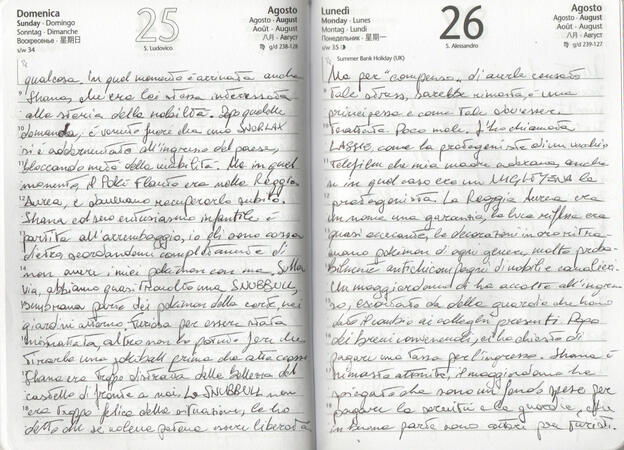 Domenica
Sunday - Domingo
Sonntag - Dimanche
Воскресенье - 星期日
s/w 34
25
S. Ludovico
Agosto
Agosto - August
Août - August
八月 - Август
g/d 238-128
qualcosa. In quel momento è arrivata anche
9 Shana, che era lei stessa interessata
alla storia della nobiltà. Dopo qualche
10 domanda, è venuto fuori che uno SNORLAX
si è addormentato all'ingresso del paese,
11 bloccando metà della viabilità. Ma in quel
momento, il Poké Flauto era nella Reggia
12 Aurea, e dovevamo recuperarlo subito.
Shana col suo entusiasmo infantile è
13 partita all'arrembaggio, io gli sono corsa
dietro, scordandomi completamente di
14 non avere i miei pokémon con me. Sulla
via, abbiamo quasi travolto una SNUBBULL,
15 parte dei pokémon della corte, nei
giardini attorno, furiosa per essere stata
16 altro non ho potuto fare che
tirarle una pokéball prima che attaccasse
17 Shana era troppo distratta dalla bellezza del
castello di fronte a noi. La SNUBBULL non
18 era troppo felice della situazione, le ho
detto che se voleva poteva essere liberata
Lunedì
Monday - Lunes
Montag - Lundi
Понедельник - 星期一
s/w 35
26
S. Alessandro
Agosto
Agosto - August
Août - August
八月 - Август
g/d 239-127
Summer Bank Holiday (UK)
Ma per "compenso" di averle causato
9 tale stress, sarebbe rimasta, è una
principessa e come tale dev'essere
10 trattata. Poco male. L'ho chiamata
LASSIE, come la protagonista di un vecchio
11 telefilm che mia madre adorava, anche
se in quel caso era un MIGHTYENA la
12 protagonista. La Reggia Aurea era
un nome una garanzia, la luce riflessa era
13 quasi accecante, le decorazioni in oro ritrae-
vano pokémon di ogni genere, molto proba-
14 bilmente antichi compagni di nobili e cavalieri.
Un maggiordomo ci ha accolto all'ingres-
15 so, scortato da delle guardie che hanno
dato il cambio ai colleghi presenti. Dopo
16 dei brevi convenevoli, ci ha chiesto di
pagare una tassa per l'ingresso. Shana è
17 rimasta attonita, il maggiordomo ha
spiegato che sono un fondo spese per
18 pagare la servitù e la guardia, che
in buona parte sono attori per turisti.